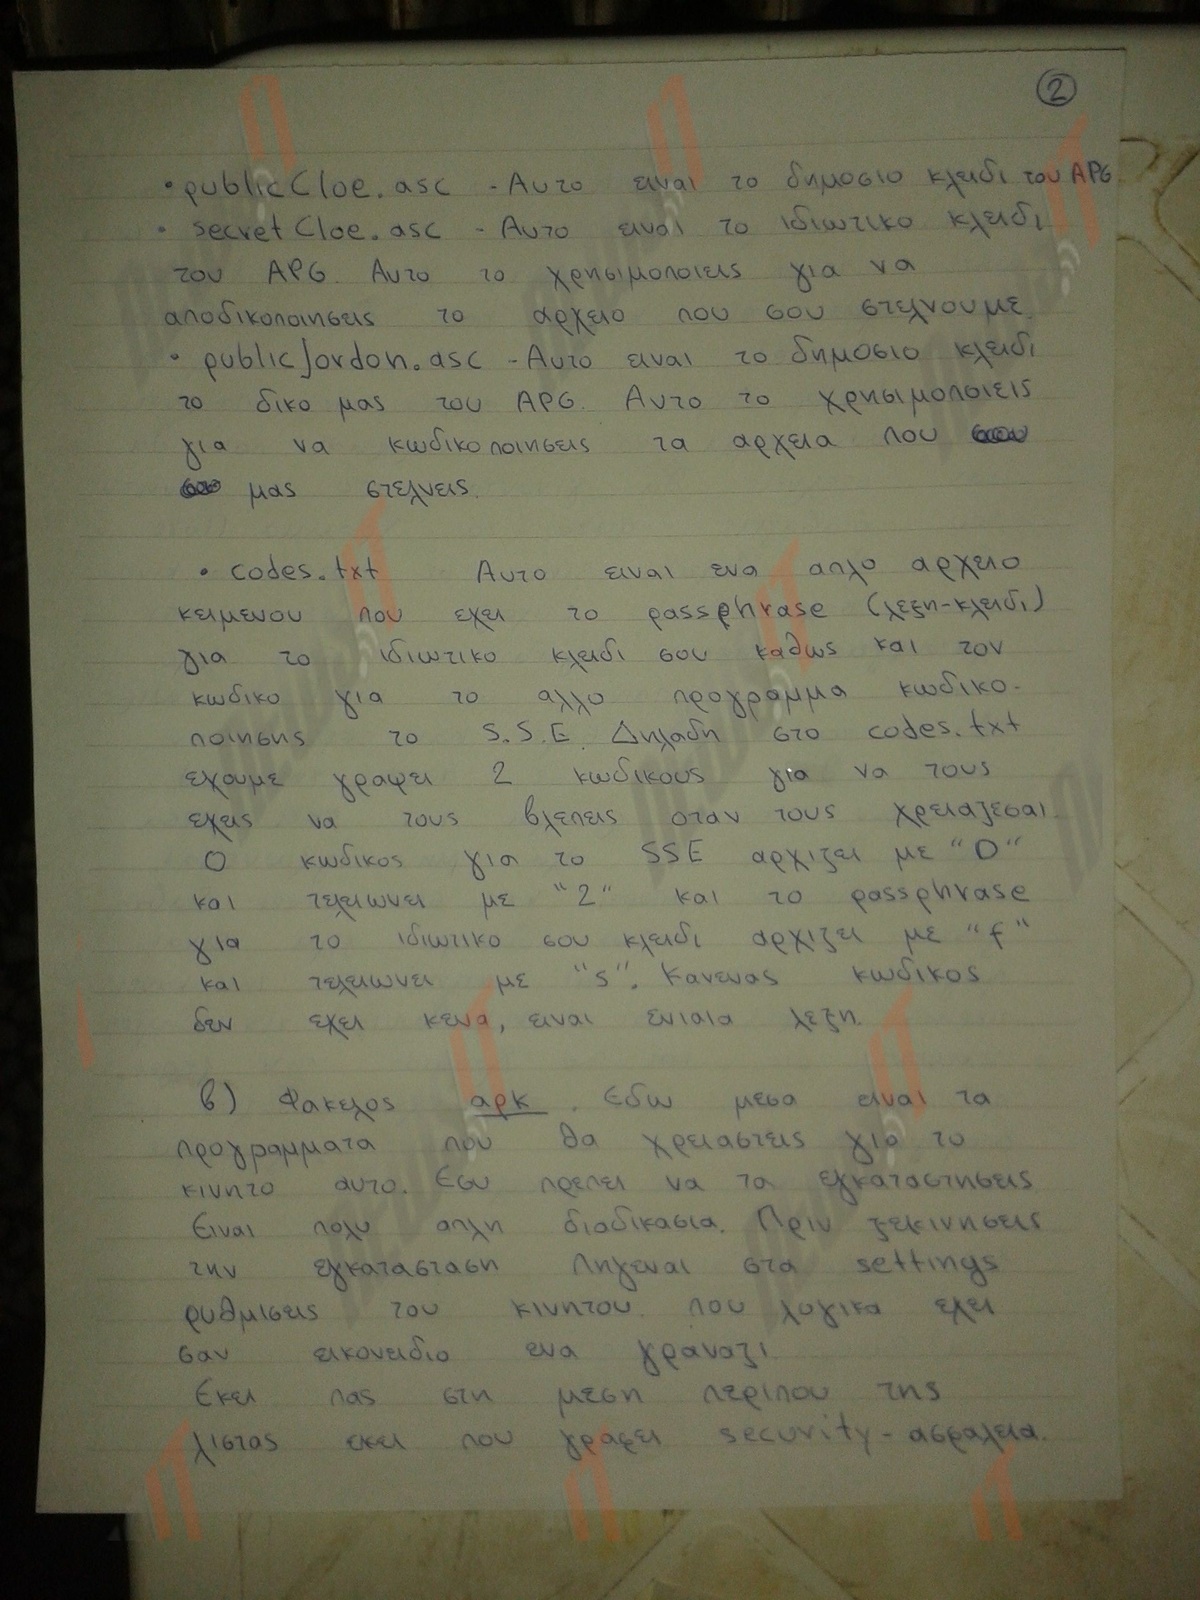 2
• publicCloe.asc - Αυτο ειναι το δημοσιο κλειδι του APG
• secretCloe.asc - Αυτο ειναι το ιδιωτικο κλειδι
του APG. Αυτο το χρησιμοποιεις για να
αποδικοποιησεις το αρχειο που σου στελνουμε.
• publicJordon.asc - Αυτο ειναι το δημοσιο κλειδι
το δικο μας του APG. Αυτο το χρησιμοποιεις
για να κωδικοποιησεις τα αρχεια που
μας στελνεις.
• codes.txt Αυτο ειναι ενα απλο αρχειο
κειμενου που εχει το passphrase (λεξη-κλειδι)
για το ιδιωτικο κλειδι σου καθως και τον
κωδικο για το αλλο προγραμμα κωδικο-
ποιησης το S.S.E. Δηλαδη στο codes.txt
εχουμε γραψει 2 κωδικους για να τους
εχεις να τους βλεπεις οταν τους χρειαζεσαι.
Ο κωδικος για το SSE αρχιζει με "D"
και τελειωνει με "2" και το passphrase
για το ιδιωτικο σου κλειδι αρχιζει με "f"
και τελειωνει με "s". Κανενας κωδικος
δεν εχει κενα, ειναι ενιαια λεξη.
β) Φακελος apk. Εδω μεσα ειναι τα
προγραμματα που θα χρειαστεις για το
κινητο αυτο. Εσυ πρεπει να τα εγκαταστησεις
Ειναι πολυ απλη διαδικασια. Πριν ξεκινησεις
την εγκατασταση πηγεναι στα settings
ρυθμισεις του κινητου που λογικα εχει
σαν εικονειδιο ενα γραναζι.
Εκει πας στη μεση περιπου της
λιστας εκει που γραφει security - ασφαλεια.